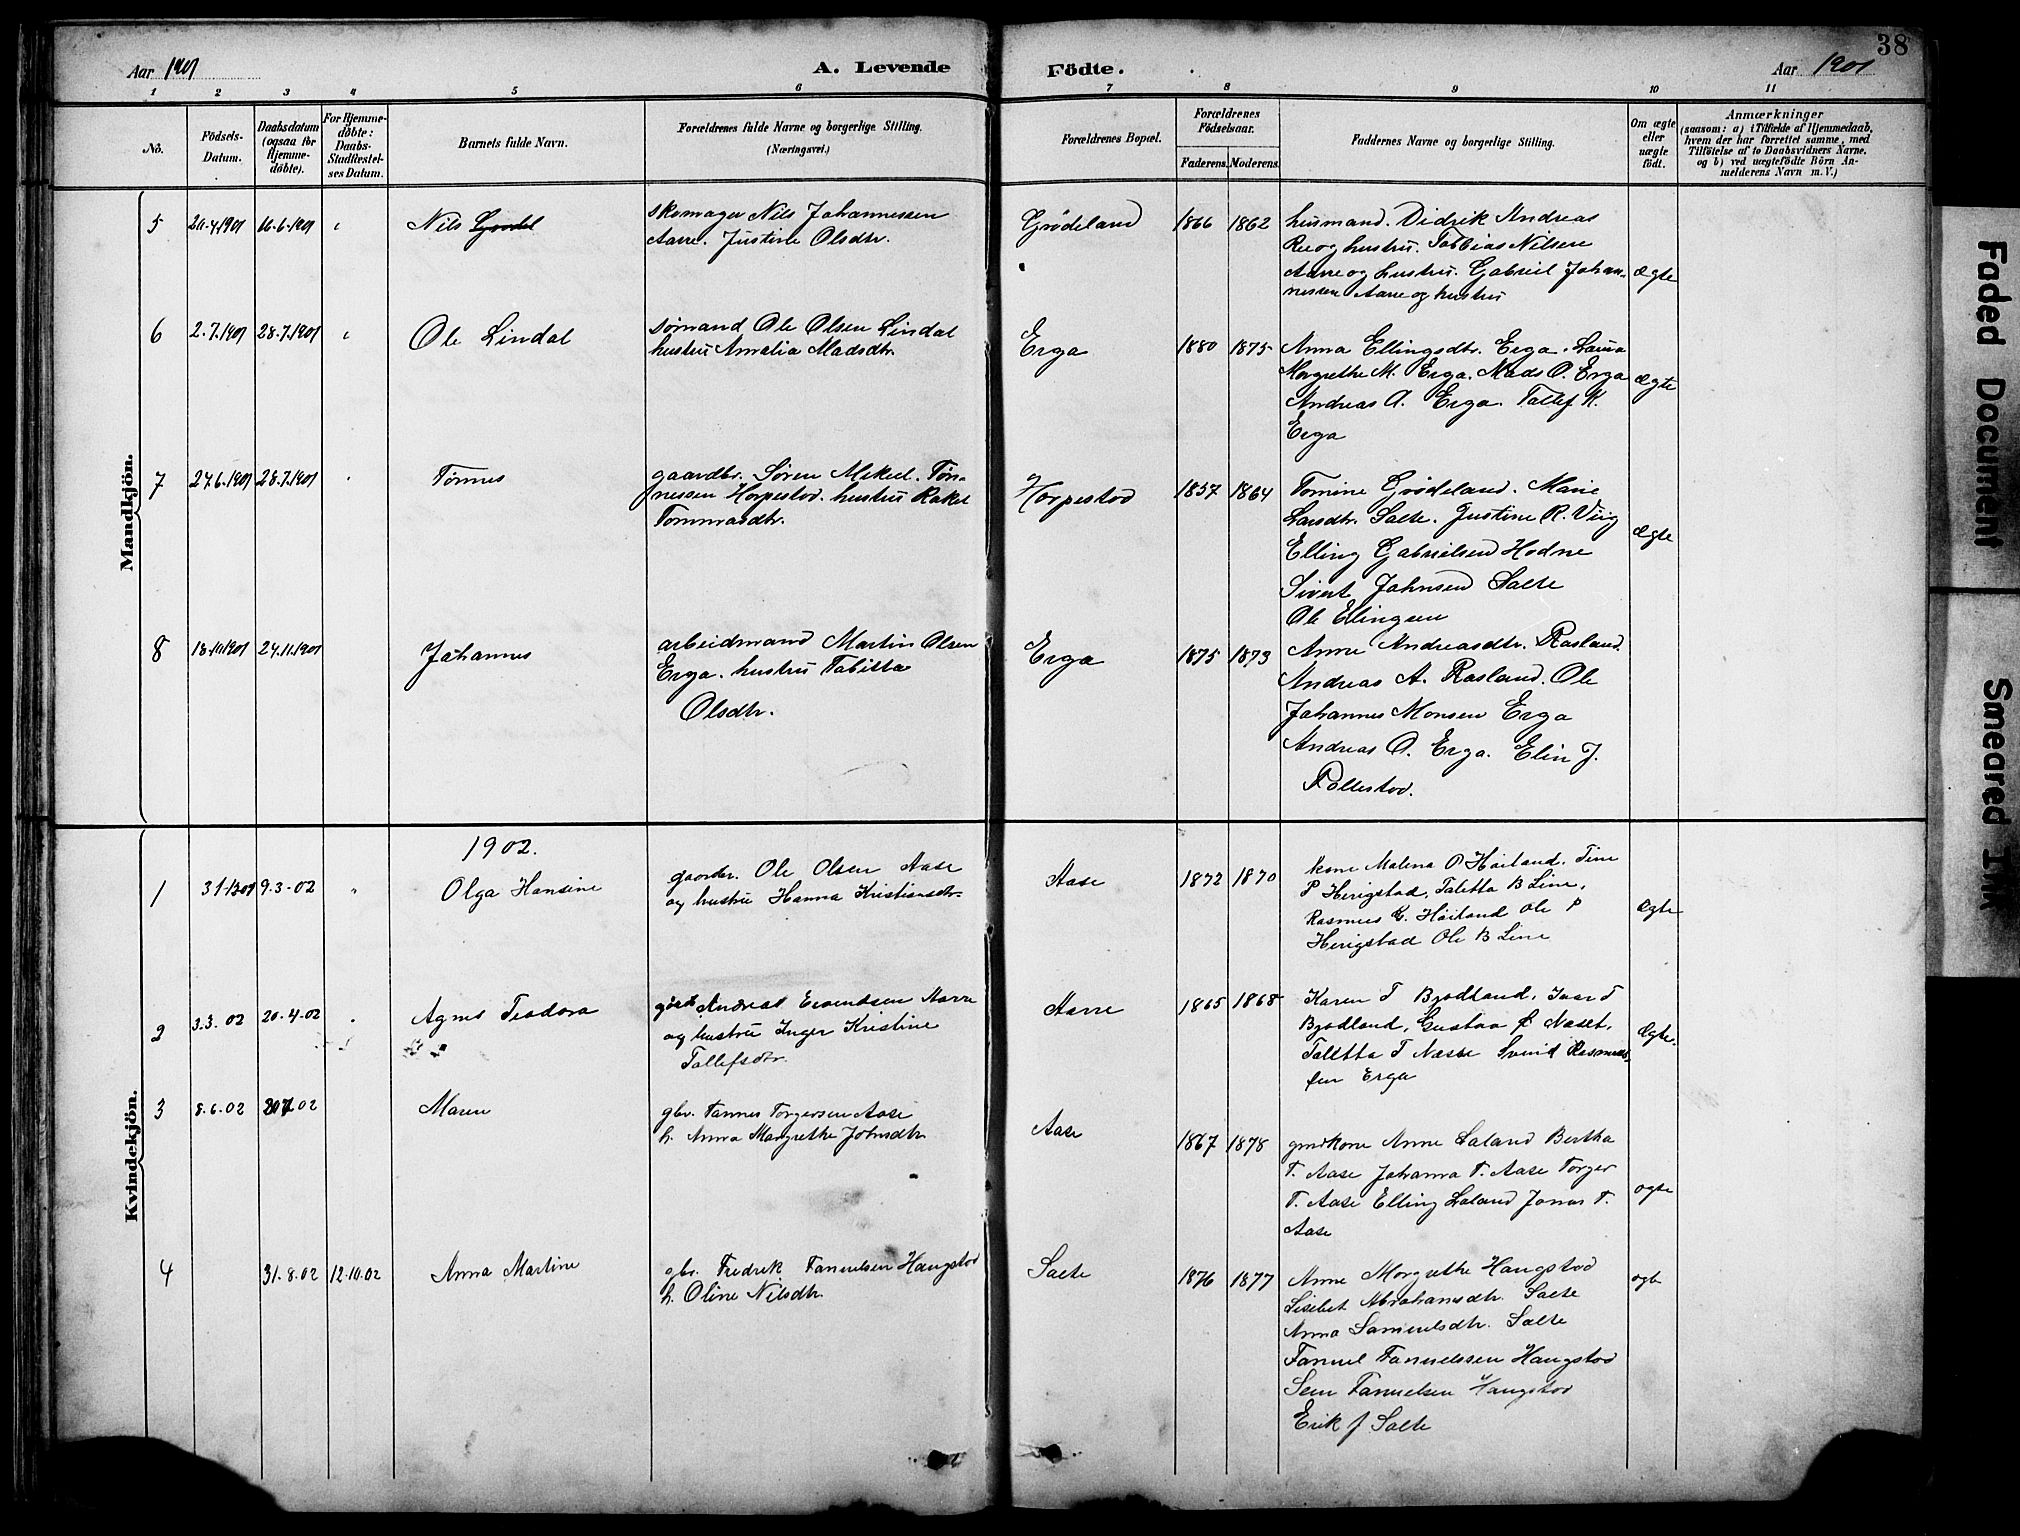 38
Aar 1901
A. Levende
Födte.
Aar 1901
1 2 3 4 5 6 7 8 9 10 11
No.
Födsels-
Datum.
Daabsdatum
(ogsaa for
Hjemme-
døbte).
For Hjemme-
døbte:
Daabs-
Stadfæstel-
ses Datum.
Barnets fulde Navn.
Forældrenes fulde Navne og borgerlige Stilling.
(Næringsvei.)
Forældrenes Bopæl.
Forældrenes
Födselsaar.
Faderens.
Moderens.
Faddernes Navne og borgerlige Stilling.
Om ægte
eller
uægte
födt.
Anmærkninger
(saasom: a) i Tilfælde af Hjemmedaab,
hvem der har forrettet samme, med
Tilföielse af to Daabsvidners Navne,
og b) ved uægtefödte Börn An-
melderens Navn m. V.)
Mandkjön.
5
1901
16.6.1901
Nils
skomager Nils Johannessen
Aarre. Justine Olsdtr.
Grødeland
1866
1862
husmand. Didrik Andreas
Ree og hustru. Tobbias Nilsen
Aarre og hustru. Gabriel Johan-
nessen Aarre og hustru
ægte
6
2.7.1901
28.7.1901
Ole Lindal
sømand Ole Olsen Lindal
hustru Amalia Madsdtr.
Erga
1880
1875
Anna Ellingsdtr. Erga. Laura
Margrethe M. Erga. Mads O. Erga
Andreas A. Erga. Tollef K.
Erga
ægte
7
27.6.1901
28.7.1901
Tønnes
gaardbr. Søren Mikal. Tøn-
nessen Horpestad. hustru Rakel
Tommasdtr.
Horpestad
1857
1864
Tomine Grødeland. Marie
Larsdtr. Salte. Justine R. Viig
Elling Gabrielsen Hodne
Sivert Johnsen Salte
Ole Ellingsen
ægte
8
18.10.1901
24.11.1901
Johannes
arbeidmand Martin Olsen
Erga. hustru Tabitta
Olsdtr.
Erga
1875
1873
Anne Andreasdtr. Rosland.
Andreas A. Rosland. Ole
Johannes Monsen Erga
Andreas O. Erga. Elin J.
Pollestad.
1902.
Kvindekjön.
1
9.3-02
Olga Hansine
gaardbr. Ole Olsen Aase
og hustru Hanna Kristiansdtr.
Aase
1872
1870
kone Malena P Høiland. Tine
P Herigstad, Taletta B Line,
Rasmus G. Høiland Ole P
Herigstad Ole B Line
Ægte
2
3.3.02
20.4.02
Agnes Teodora
Andreas Eivendsen Aarre
og hustru Inger Kristine
Tollefsdtr.
Aarre
1865
1868
Karen T Bjodland, Ivar T
Bjodland, Gustav Næset,
Taletta T Næsse Svend Rasmus-
sen Erga
Ægte.
3
8.6.02
20.7.02
Maren
gbr. Tønnes Torgersen Aase
h. Anna Margrethe Johnsdtr
Aase
1867
1878
gmdkone Anne Laland Bertha
T. Aase Johanna T. Aase Torger
T. Aase Elling Laland Jonas T.
Aase
ægte
4
31.8.02
12.10.02
Anna Martine
gbr. Fredrik Fanuelsen Haugstad
h. Oline Nilsdtr.
Salte
1876
1877
Anne Margrethe Haugstad
Lisebet Abrahamsdtr. Salte
Anna Samuelsdtr. Salte
Fanuel Fanuelssen Haugstad
Sem Fanuelsen Haugstad
Erik J Salte
ægte
Faded Document
Smeared Ink